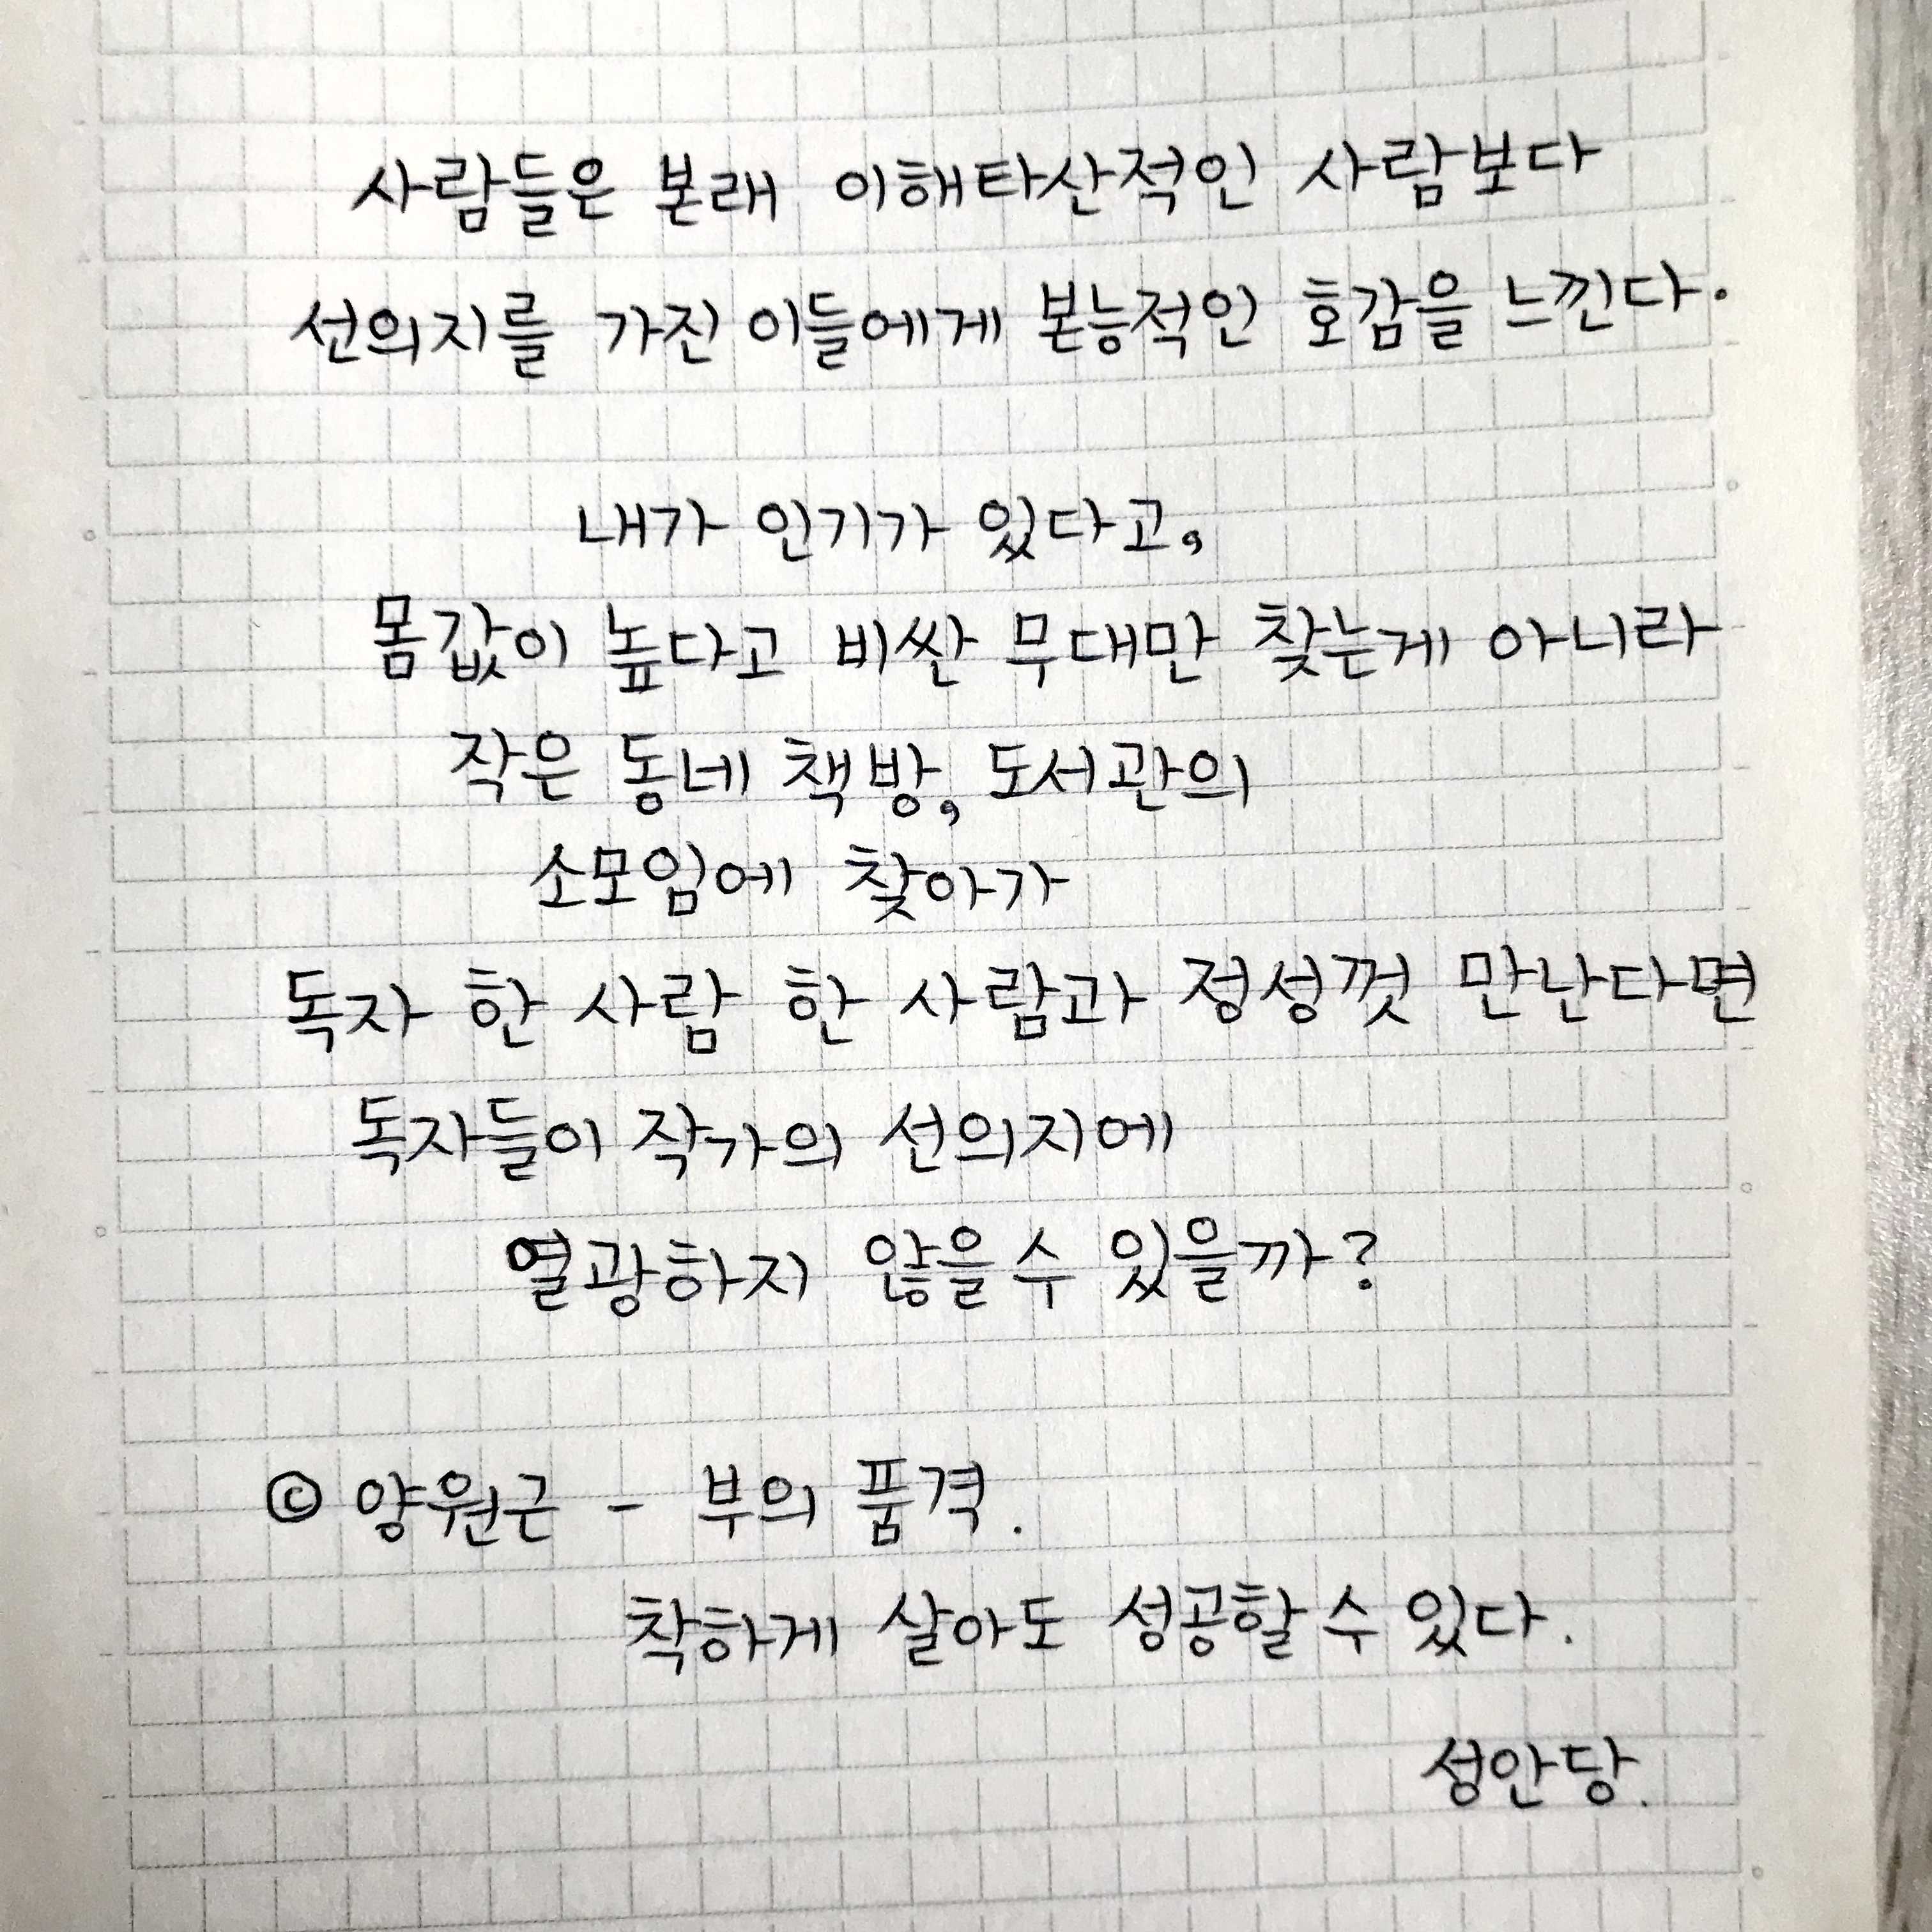 사람들은 본래 이해타산적인 사람보다
선의지를 가진 이들에게 본능적인 호감을 느낀다.
내가 인기가 있다고,
몸값이 높다고 비싼 무대만 찾는게 아니라
작은 동네 책방, 도서관의
소모임에 찾아가
독자 한 사람 한 사람과 정성껏 만난다면
독자들이 작가의 선의지에
열광하지 않을 수 있을까?
© 양원근 - 부의 품격.
착하게 살아도 성공할 수 있다.
성안당.